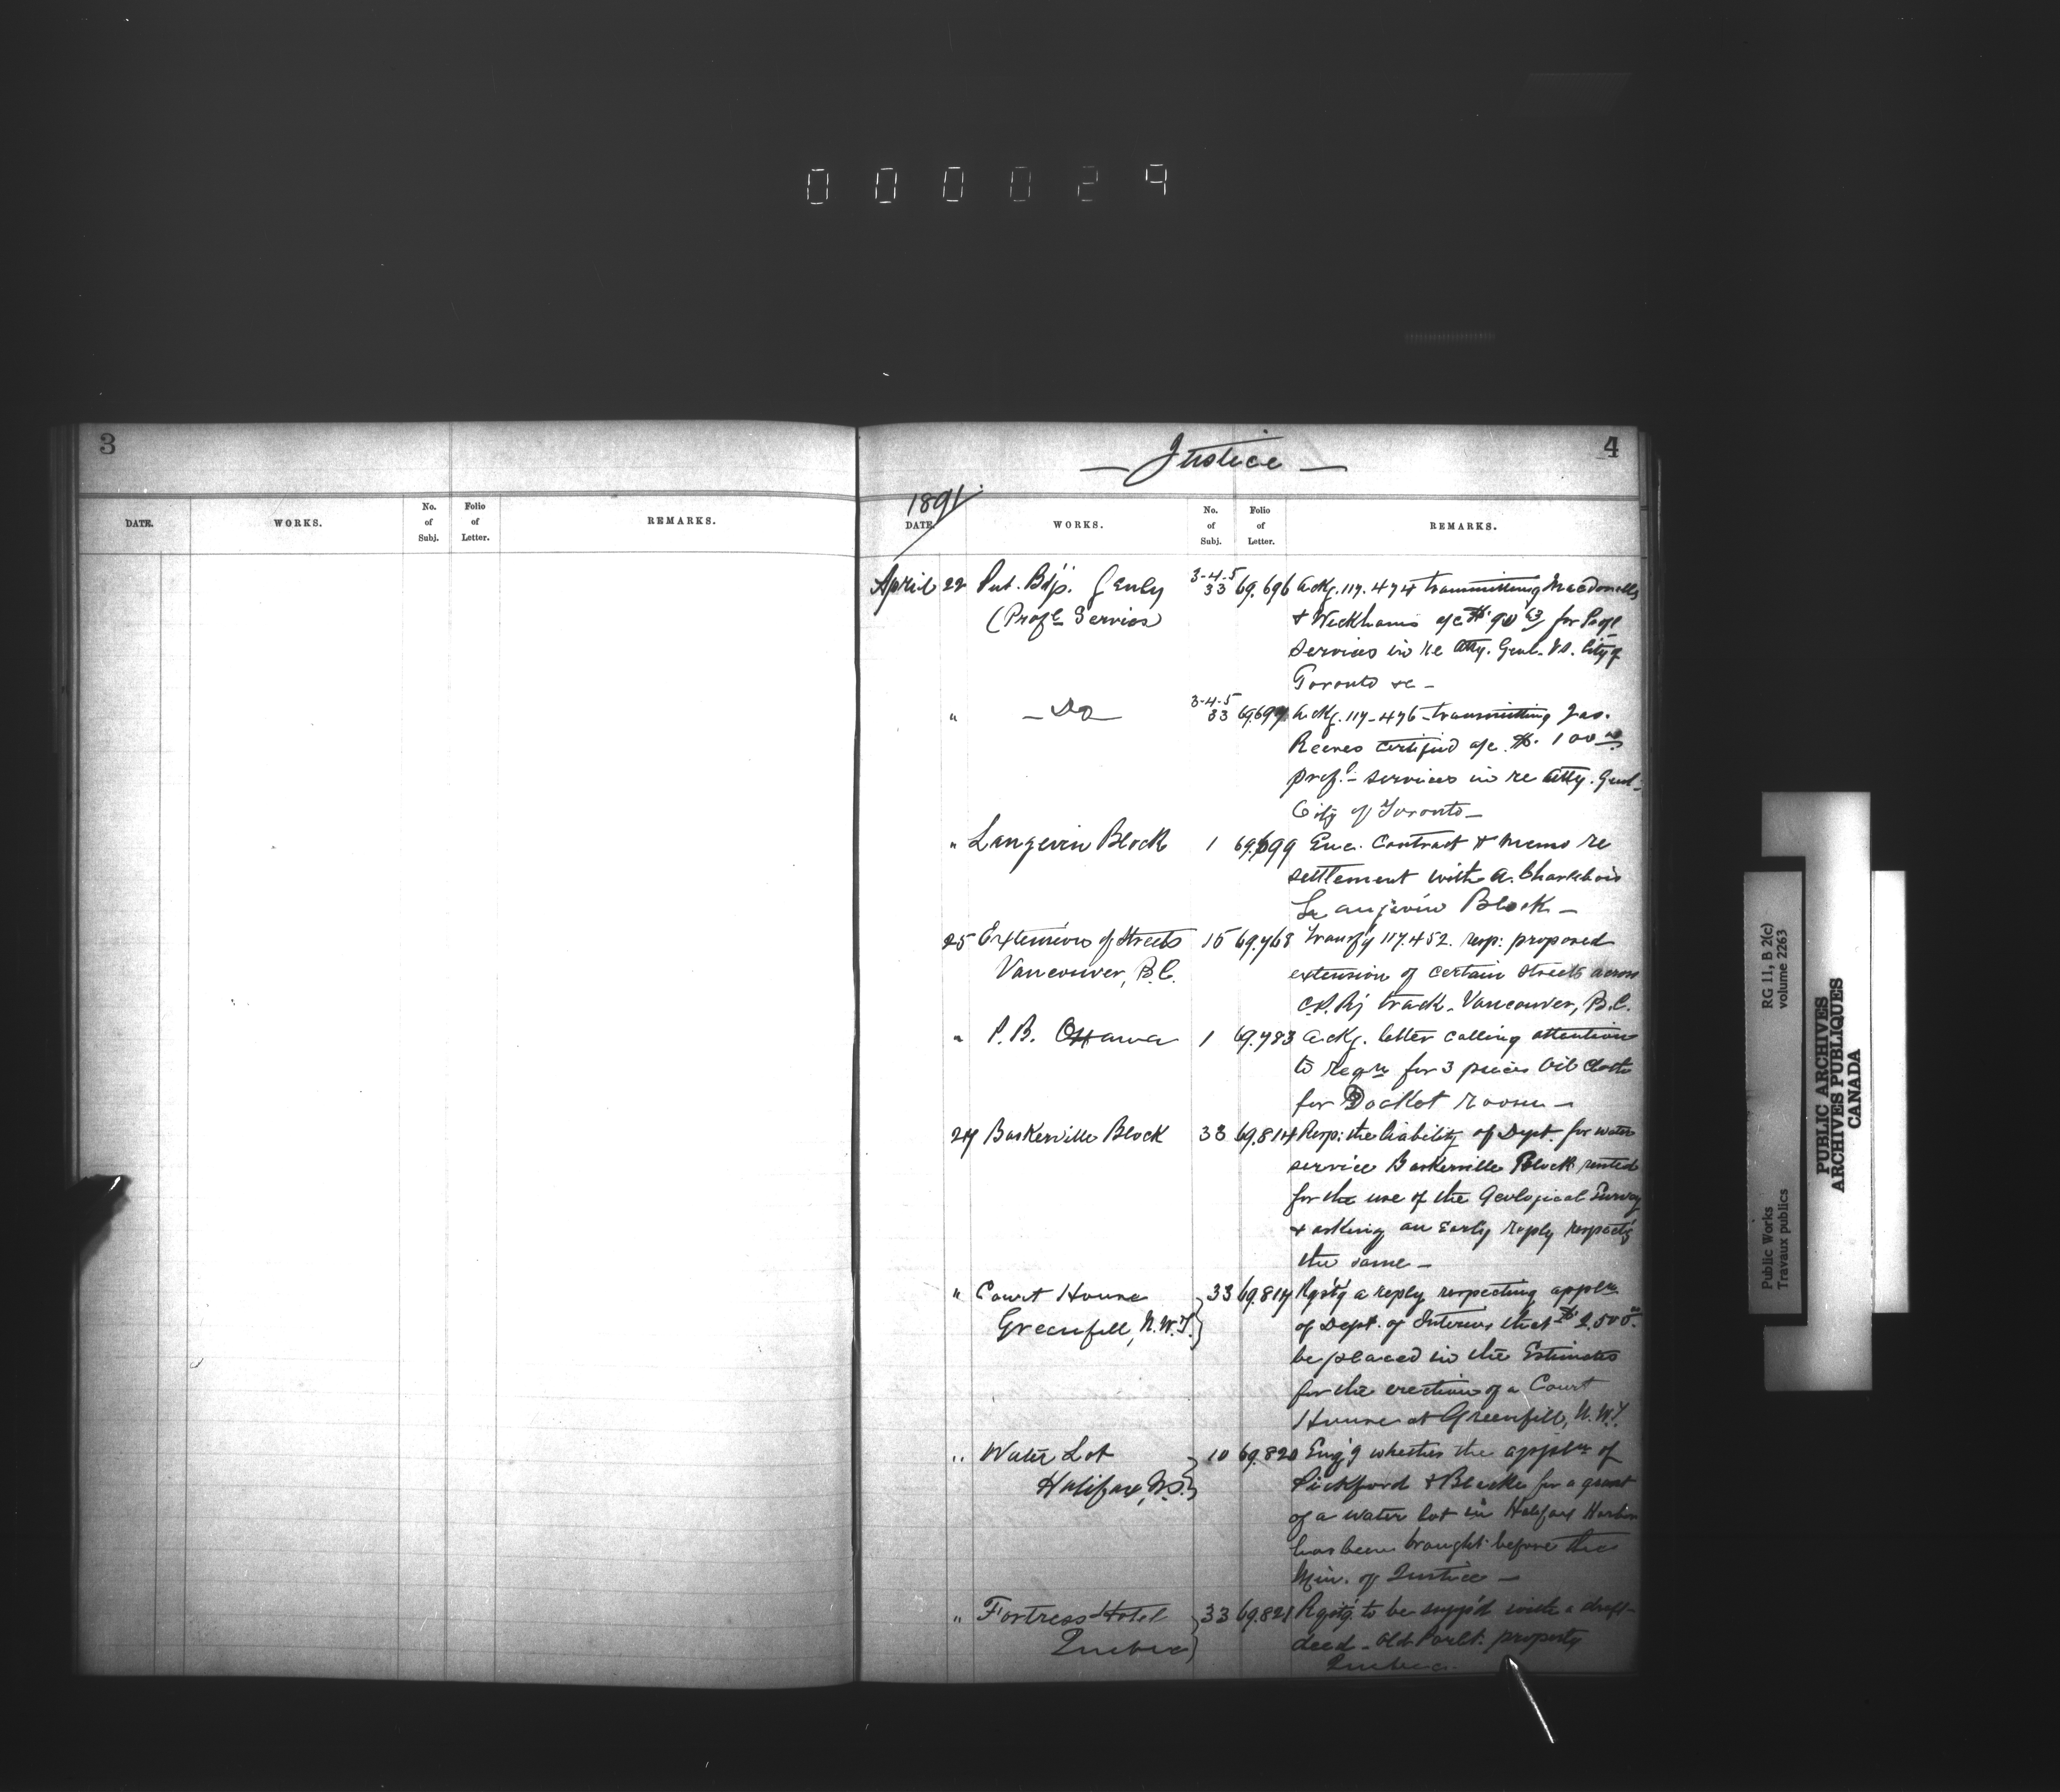 000029
3
DATE. WORKS. No. of Subj. Folio of Letter. REMARKS.
— Justice — 4
1891
DATE. WORKS. No. of Subj. Folio of Letter. REMARKS.
April 22 Pub. Bd'gs. Genly 3-4-5 33 69.696 Ackg. 117.474 transmitting Macdonells
(Profl. Services) & Wickhams a/c $ 90 63 for Profl
services in re Atty. Genl. vs. City of
Toronto &c —
" — Do — 3-4-5 33 69.697 Ackg. 117-476 - transmitting Jas.
Reeves certified a/c. $. 100 00
profl. services in re Atty. Genl.
City of Toronto —
" Langevin Block 1 69.699 Enc. Contract & memo re
settlement with A. Charlebois
Langevin Block —
25 Extension of Streets 15 69.768 Transf'g 117.452. resp: proposed
Vancouver, B.C. extension of certain streets across
C.P.Ry track. Vancouver, B.C.
" P.B. Ottawa 1 69.783 Ackg. letter calling attention
to Reqn for 3 pieces Oil Cloth
for Docket room —
27 Baskerville Block 33 69.814 Resp: the liability of Dept. for water
service Baskerville Block rented
for the use of the Geological Survey
& asking an early reply respect'g
the same —
" Court House 33 69.817 Rqst'g a reply respecting appln.
Greenfell, N.W.T. of Dept. of Interior that $ 2,500.00
be placed in the Estimates
for the erection of a Court
House at Greenfell, N.W.T.
" Water Lot 10 69.820 Enq'g whether the appln of
Halifax, N.S. Pickford & Black for a grant
of a water lot in Halifax Harbor
has been brought before the
Min. of Justice —
" Fortress Hotel 33 69.821 Rqst'g to be supp'd with a draft
Quebec deed - Old Parlt. property
Quebec.
Public Works RG 11, B 2(c)
Travaux publics volume 2263
PUBLIC ARCHIVES
ARCHIVES PUBLIQUES
CANADA